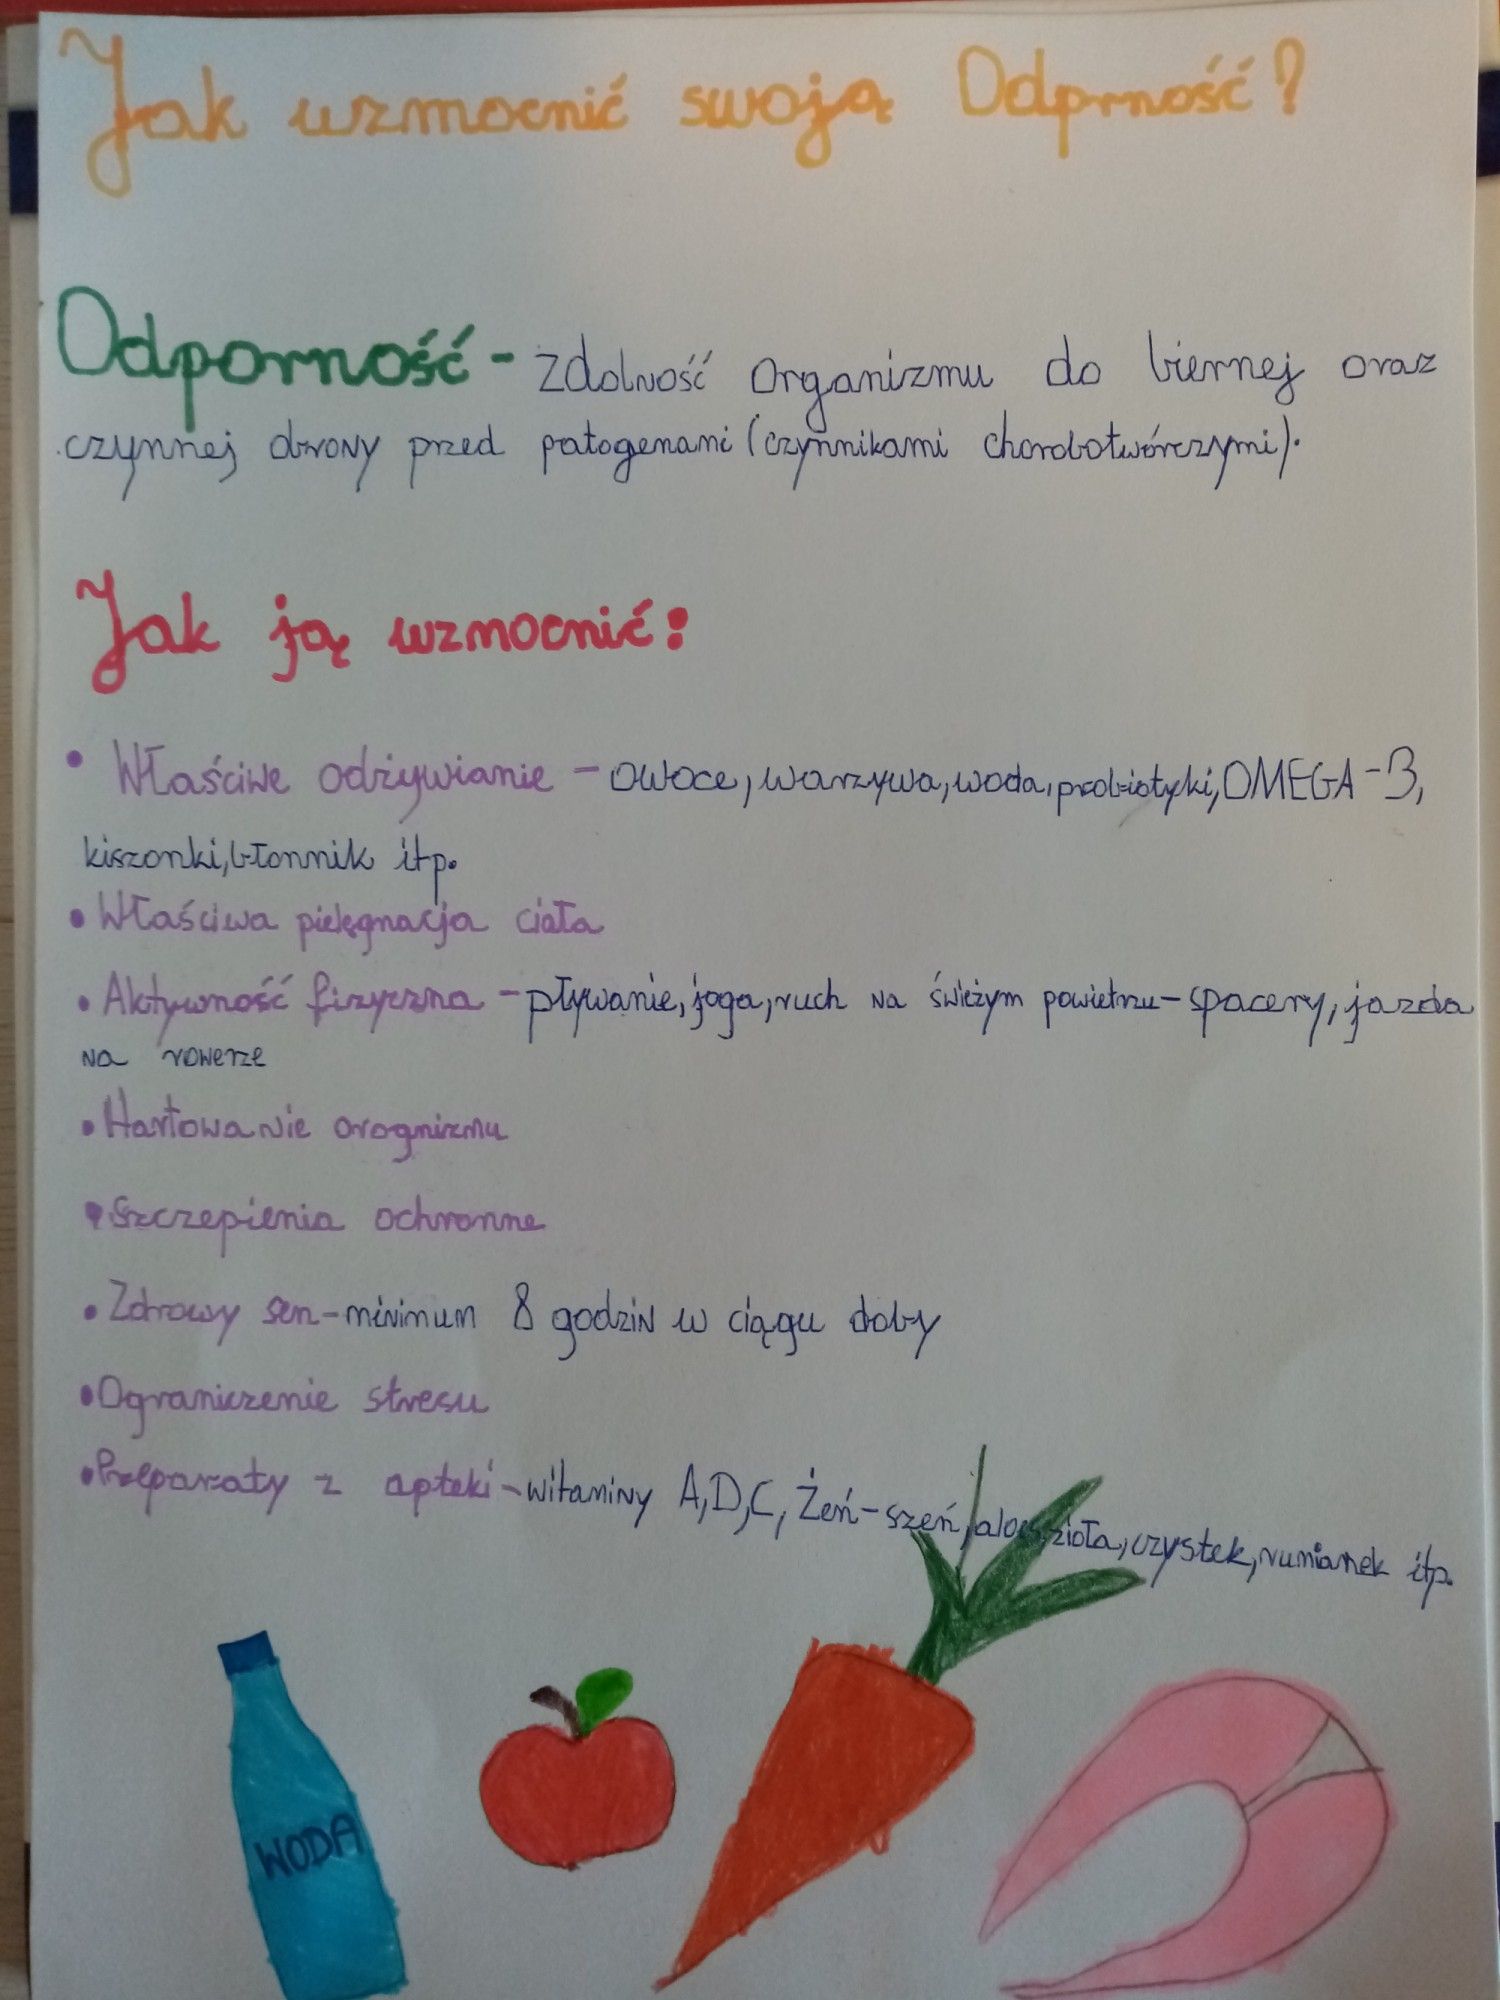 Jak wzmocnić swoją Odprność?
Odporność - zdolność organizmu do biernej oraz
czynnej obrony przed patogenami (czynnikami chorobotwórczymi).
Jak ją wzmocnić:
• Właściwe odżywianie - owoce, warzywa, woda, probiotyki, OMEGA-3,
kiszonki, błonnik itp.
• Właściwa pielęgnacja ciała
• Aktywność fizyczna - pływanie, joga, ruch na świeżym powietrzu - spacery, jazda
na rowerze
• Hartowanie orognizmu
• Szczepienia ochronne
• Zdrowy sen - minimum 8 godzin w ciągu doby
• Ograniczenie stresu
• Preparaty z apteki - witaminy A, D, C, Żeń-szeń, aloes, zioła, czystek, rumianek itp.
WODA